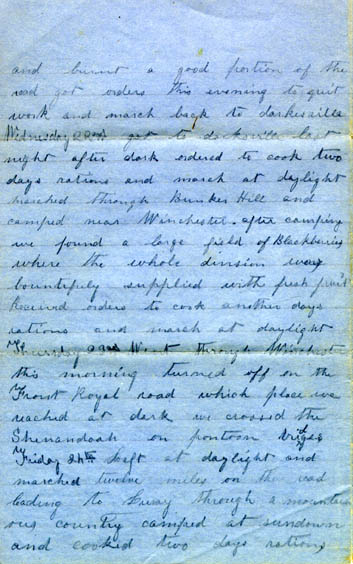 and burnt a good portion of the
road got orders this evening to quit
work and march back to darkesville
Wednesday 22nd got to darksville last
night after dark ordered to cook two
days rations and march at daylight
marched through Bunker Hill and
camped near Winchester. after camping
we found a large field of Blackberries
where the whole division was
bountifuly supplied with fresh fruit
Received orders to cook another days
rations and march at daylight
Thursday 23rd Went through Winchester
this morning turned off on the
Front Royal road which place we
reached at dark we crossed the
Shenandoah on pontoon briges
Friday 24th Left at daylight and
marched twelve miles on the road
leading to Luray through a mountain
ous country camped at sundown
and cooked two days rations